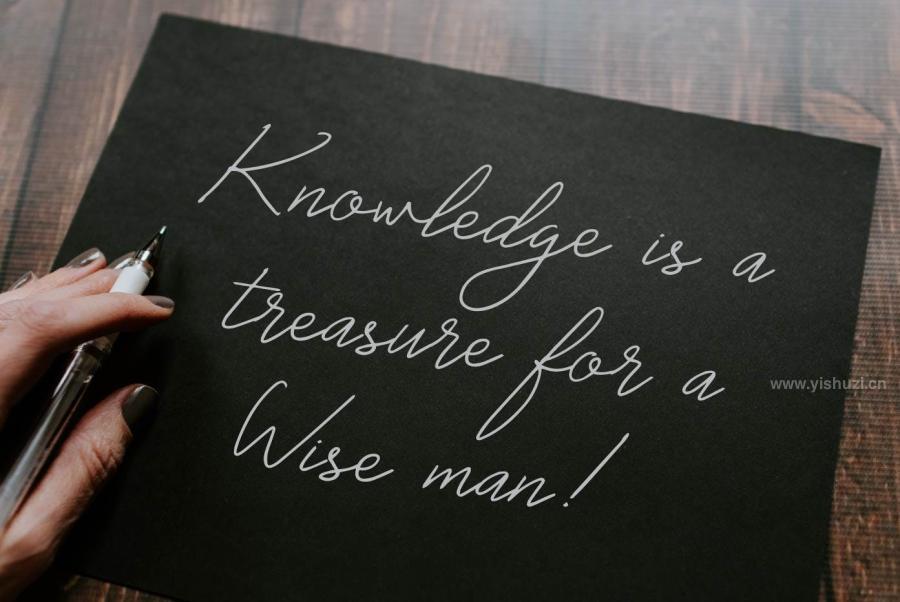 Knowledge is a
treasure for a
www.yishuzi.cn
Wise man!